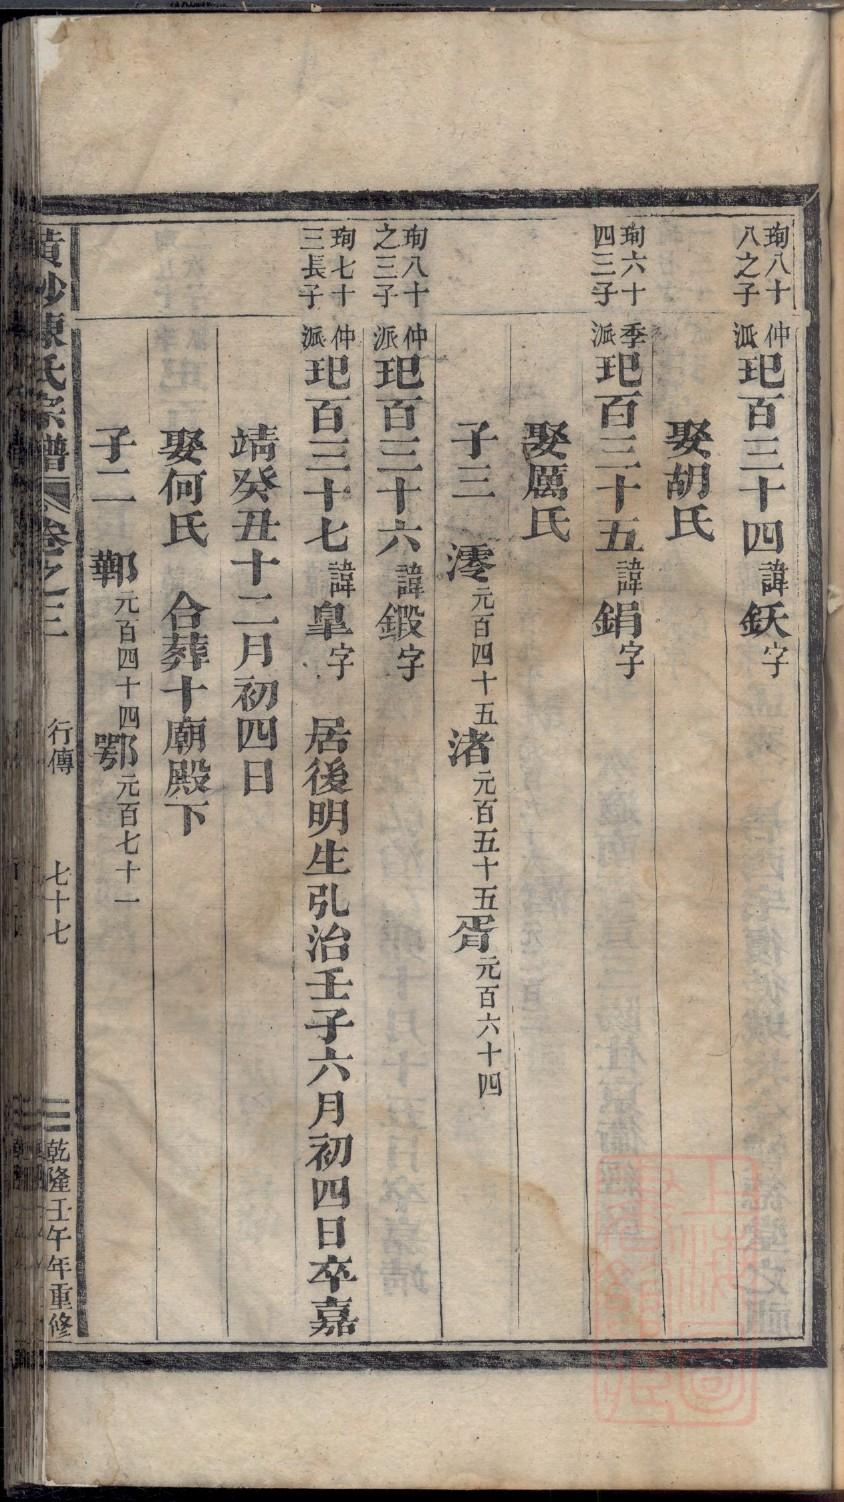 珣八十八之子
仲派玘百三十四諱鈺字
娶胡氏
珣六十四三子
季派玘百三十五諱鋗字
娶厲氏
子三 澪元百四十五渚元百五十五湑元百六十四
珣八十之三子
仲派玘百三十六諱鍛字
珣七十三長子
仲派玘百三十七諱皐字 居後明生弘治壬子六月初四日卒嘉
靖癸丑十二月初四日
娶何氏 合葬十廟殿下
子二 鄿元百四十四鄂元百七十一
黃沙陳氏宗譜 卷之三 行傳 七十七 乾隆壬午年重修